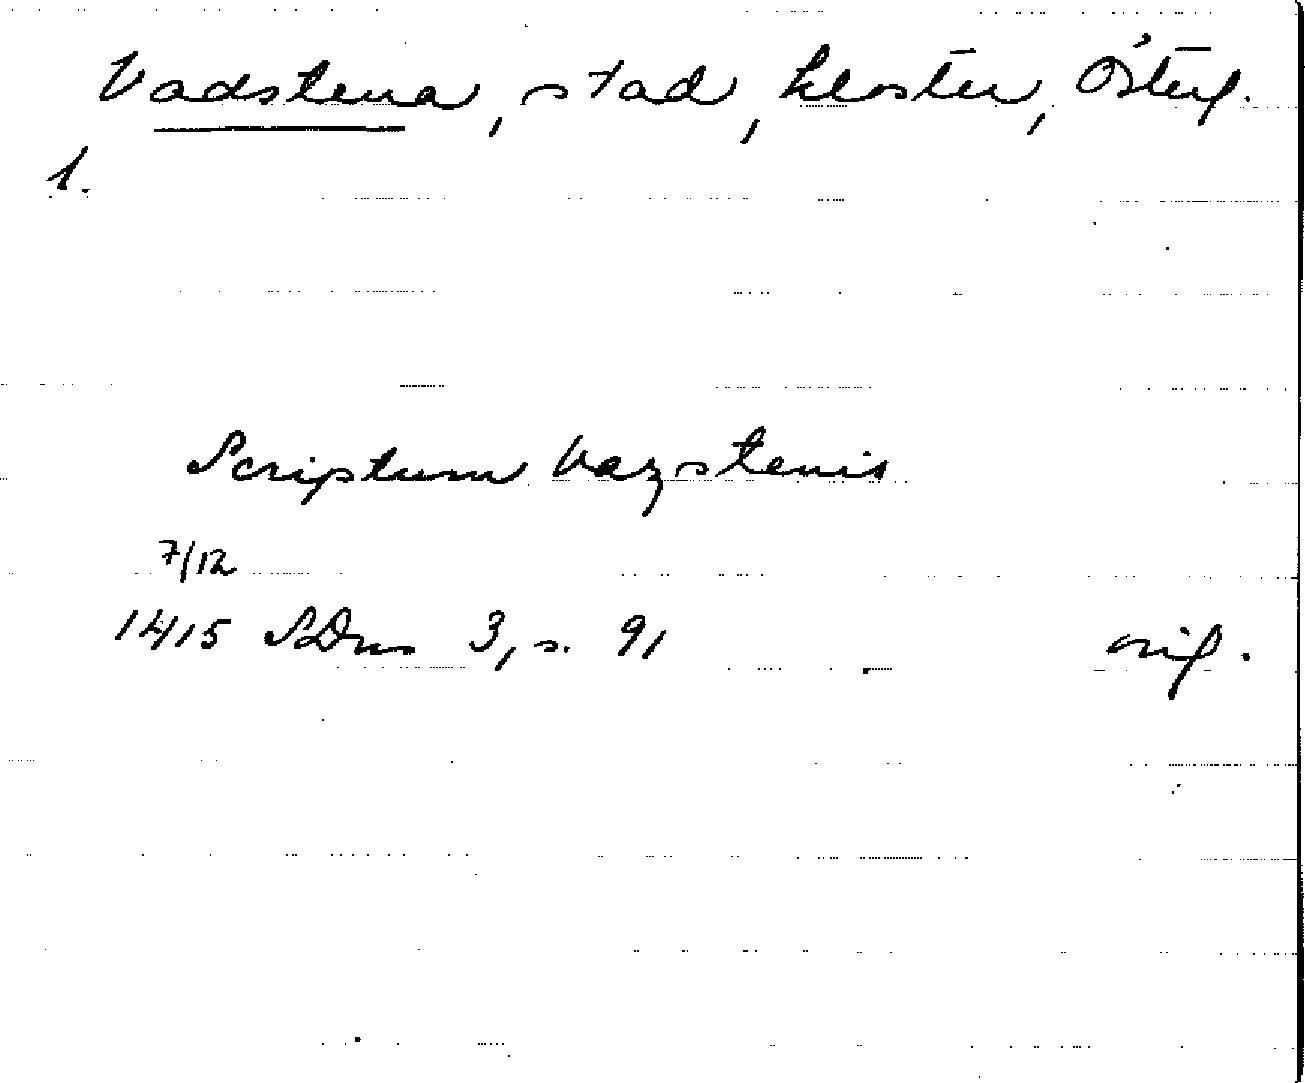 Vadstena, stad, kloster, Österg.
1.
Scriptum Vazstenis
7/12
1415 SDns 3, s. 91 orig.